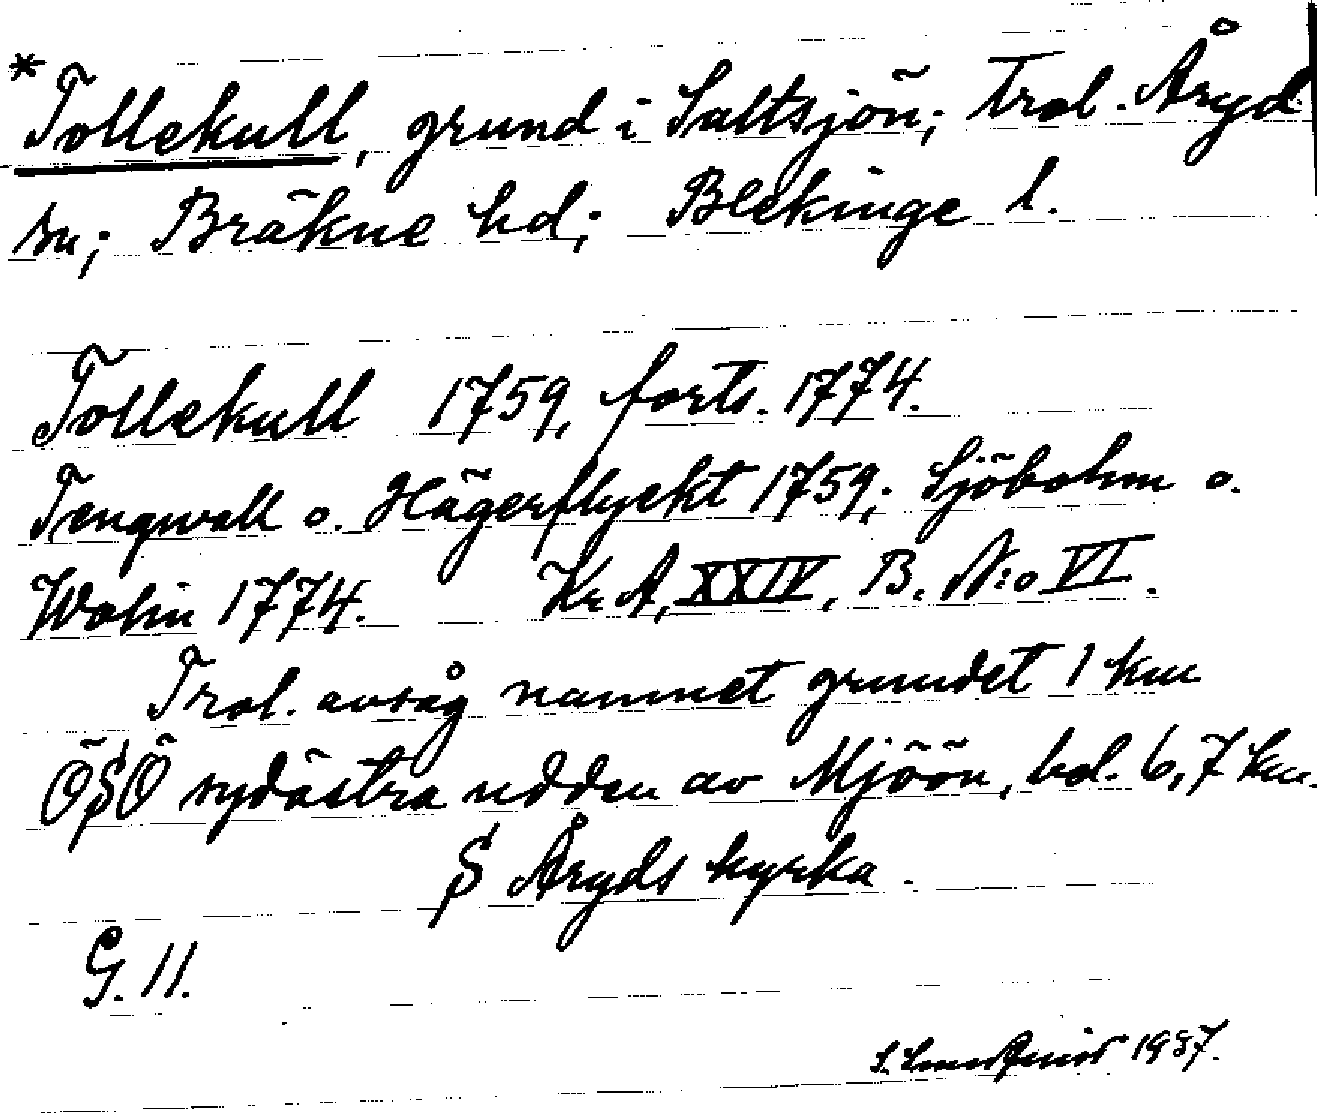 *Tollekull, grund i Saltsjön; trol. Åryd
sn; Bräkne hd; Blekinge l.
Tollekull 1759, forts. 1774.
Tengwall o. Hägerflyckt 1759; Sjöbohm o.
Wohin 1774. Kr A, XXIV, B. N:o VI.
Trol. avsåg namnet grundet 1 km
ÖSÖ sydöstra udden av Mjöön, bel. 6,7 km.
S Åryds kyrka.
G. 11.
1937.